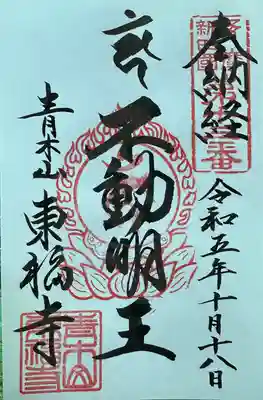 奉納経
令和五年十月十八日
不動明王
青木山 東福寺